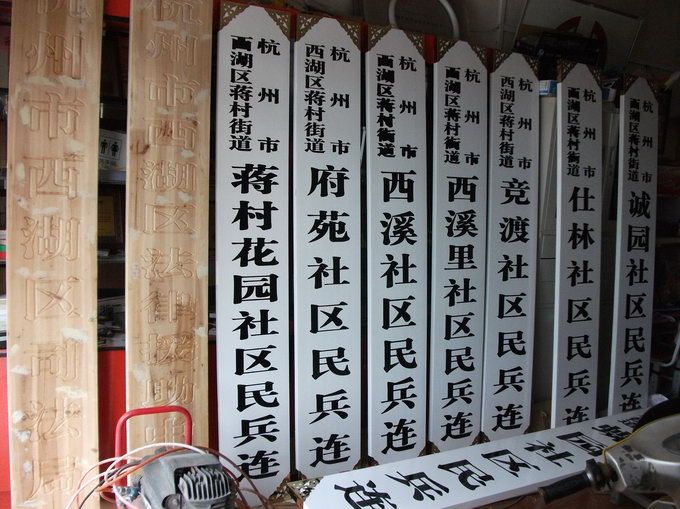 杭州市西湖区司法局
杭州市西湖区法律援助
杭州市
西湖区蒋村街道
蒋村花园社区民兵连
杭州市
西湖区蒋村街道
府苑社区民兵连
杭州市
西湖区蒋村街道
西溪社区民兵连
杭州市
西湖区蒋村街道
西溪里社区民兵连
杭州市
西湖区蒋村街道
竞渡社区民兵连
杭州市
西湖区蒋村街道
仕林社区民兵连
杭州市
西湖区蒋村街道
诚园社区民兵连
园社区民兵连